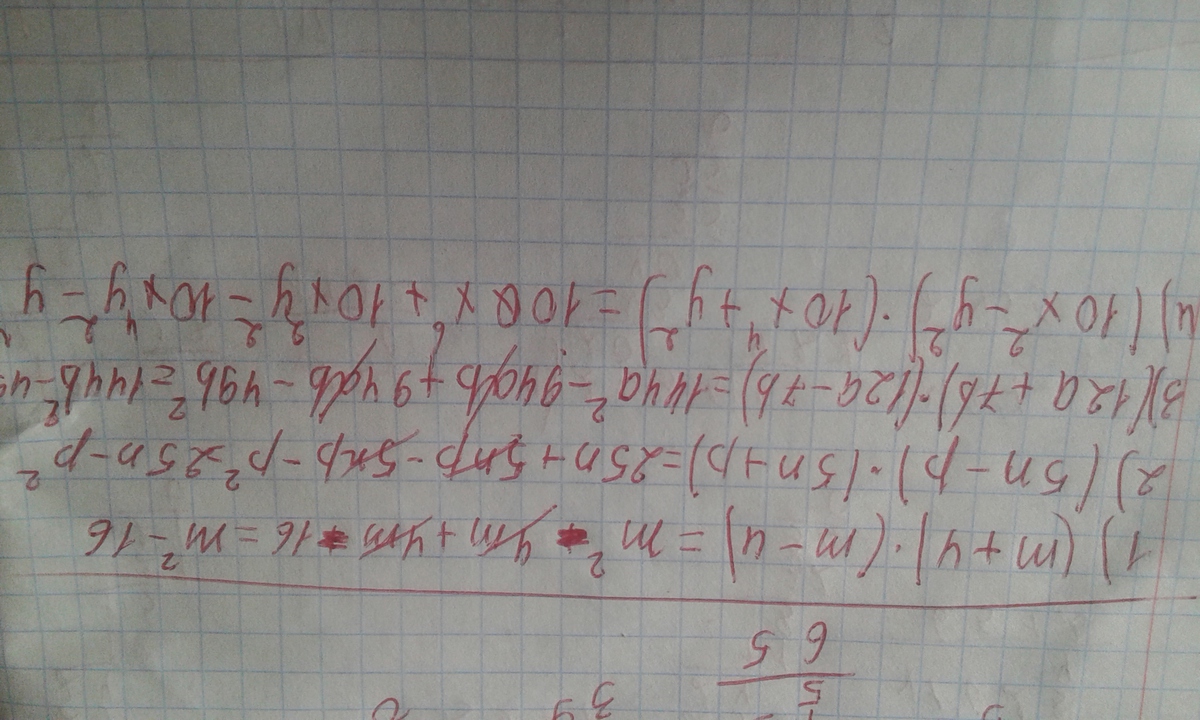 5
39
65
1) (m+4)·(m-4) = m² - 4m + 4m - 16 = m² - 16
2) (5n-p)·(5n+p) = 25n + 5np - 5np - p² = 25n - p²
3) (12a+7b)·(12a-7b) = 144a² - 94ab + 94ab - 49b² = 144b² - 4
4) (10x² - y²)·(10x⁴ + y²) = 100x⁶ + 10x²y² - 10x⁴y² - y